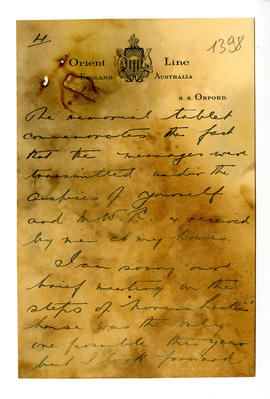 4.
1398
Orient Line
England Australia
S. S. Orford.
The memorial tablet
commemorates the fact
that the messages were
transmitted under the
auspices of yourself
and A.W.A. & received
by me at my home.
I am sorry our
brief meeting on the
steps of Norman Leslie's
house was the only
one possible this year
but I look forward